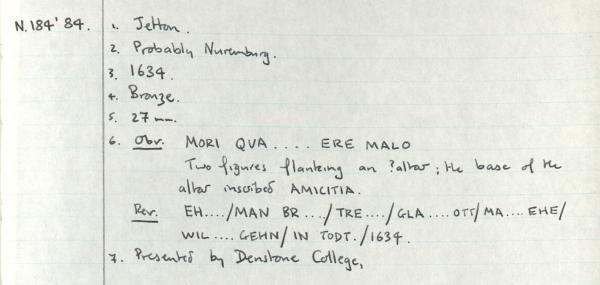 N.184'84. 1. Jetton.
2. Probably Nuremburg.
3. 1634.
4. Bronze.
5. 27 mm.
6. Obv. MORI QUA .... ERE MALO
Two figures flanking an ?altar; the base of the
altar inscribed AMICITIA.
Rev. EH..../MAN BR .../TRE..../GLA....OTT/MA....EHE/
WIL .... GEHN/ IN TODT./1634.
7. Presented by Denstone College,